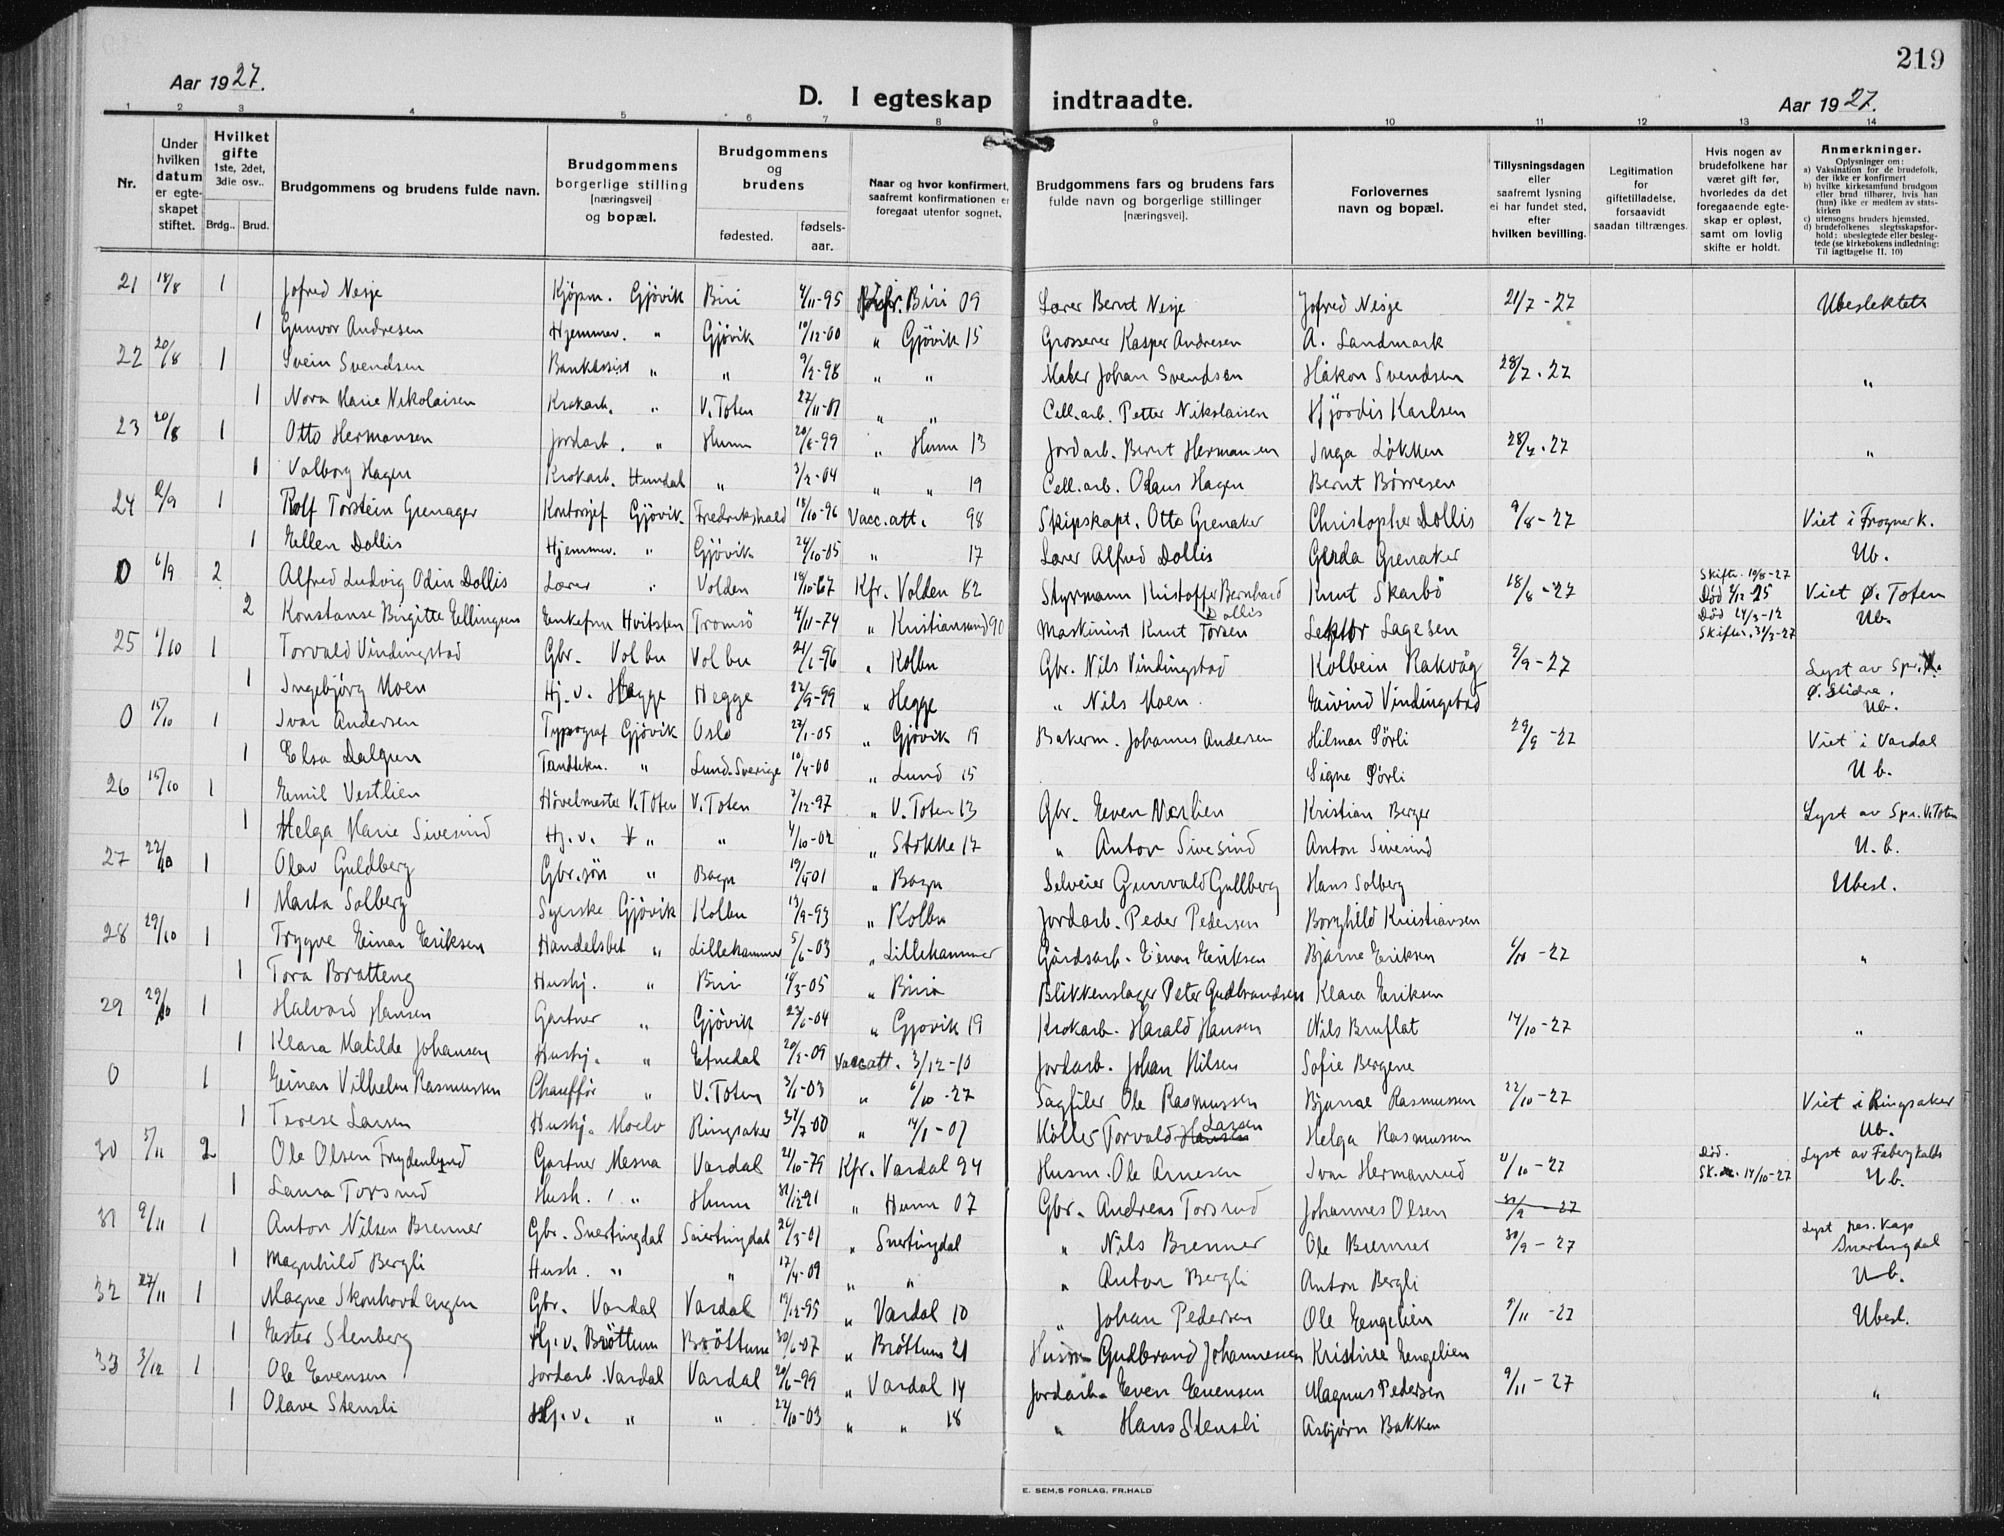 219
Aar 1927.
D. I egteskap indtraadte.
Aar 1927.
1 2 3 4 5 6 7 8 9 10 11 12 13 14
Nr.
Under hvilken datum er egteskapet stiftet.
Hvilket gifte 1ste, 2det, 3die osv..
Brdg.. Brud.
Brudgommens og brudens fulde navn.
Brudgommens borgerlige stilling [næringsvei] og bopæl.
Brudgommens og brudens
fødested. fødselsaar.
Naar og hvor konfirmert, saafremt konfirmationen er foregaat utenfor sognet.
Brudgommens fars og brudens fars fulde navn og borgerlige stillinger [næringsvei].
Forlovernes navn og bopæl.
Tillysningsdagen eller saafremt lysning ei har fundet sted, efter hvilken bevilling.
Legitimation for giftetilladelse, forsaavidt saadan tiltrænges.
Hvis nogen av brudefolkene har været gift før, hvorledes da det foregaaende egteskap er opløst, samt om lovlig skifte er holdt.
Anmerkninger.
Oplysninger om:
a) Vaksination for de brudefolk, der ikke er konfirmert
b) hvilke kirkesamfund brudgom eller brud tilhører, hvis han (hun) ikke er medlem av statskirken
c) utensogns bruders hjemsted.
d) brudefolkenes slegtsskapsforhold; ubeslegtede eller beslegtede (se kirkebokens indledning: Til iagttagelse II. 10)
21 18/8 1 Jofred Nesje Kjöpm. Gjövik Biri 4/11-95 Kfr. Biri 09 Lærer Bernt Nesje Jofred Nesje 21/7-27 Ubeslektet
1 Gunvor Andresen Hjemmev. " Gjövik 10/12-00 " Gjövik 15 Grosserer Kasper Andresen A. Landmark
22 20/8 1 Svein Svendsen Bankassist " " 9/2-98 " " Maler Johan Svendsen Håkon Svendsen 28/7-27 "
1 Nora Marie Nikolaisen Krokarb. " V. Toten 27/11-01 " " Cell.arb. Petter Nikolaisen Hjördis Karlsen
23 20/8 1 Otto Hermansen Jordarb. " Hunn 20/6-99 " Hunn 13 Jordarb. Bernt Hermansen Inga Løkken 28/7-27 "
1 Valborg Hagen Krokarb. Hundal " 3/2-04 " " 19 Cell.arb. Olaus Hagen Bernt Børresen
24 2/9 1 Rolf Torstein Grenager Kontorsjef Gjövik. Fredrikshald 18/10-96 Vacc.att. 98 Skipskapt. Otto Grenaker Christopher Dollis 9/8-27 Viet i Frogner k.
1 Ellen Dollis Hjemmev. " Gjövik 24/10-05 " 17 Lærer Alfred Dollis Gerda Grenaker Ub.
0 6/9 2 Alfred Ludvig Odin Dollis Lærer " Volden 18/10-67 Kfr. Volden 82 Styrmann Kristoffer Bernhard Dollis Knut Skarbö 18/8-27 Skifte. 19/8-27 Død 4/12 25 Viet Ø. Toten
2 Konstanse Birgitte Ellingsen Enkefru Hvitsten Tromsö 4/11-74 " Kristiansund 90 Maskinist Knut Torsen Lektor Lagesen Død 24/3-12 Skifte. 31/3-27 Ub.
25 1/10 1 Torvald Vindingstad Gbr. Volbu Volbu 21/1-96 " Kolbu Gbr. Nils Vindingstad Kolbein Rakvåg 9/9-27 Lyst av Spr. i
1 Ingebjörg Moen Hj.v. Hegge Hegge 22/9-99 " Hegge " Nils Moen. Eivind Vindingstad Ø. Slidre. Ub.
0 15/10 1 Ivar Andersen Typograf Gjövik Oslo 27/1-05 " Gjövik 19 Bakerm. Johannes Andersen Hilmar Sörli 29/9-27 Viet i Vardal
1 Elsa Dalgren Tandtekn. " Lund. Sverige 10/4-00 " Lund 15 Signe Sörli U b.
26 15/10 1 Emil Vestlien Høvelmester V. Toten V. Toten 7/12-97 " V. Toten 13 Gbr. Even Nærlien Kristian Berger Lyst av Spr. V. Toten
1 Helga Marie Sivesind Hj.v. " " 4/10-02 " Stokke 17 " Anton Sivesind Anton Sivesind U. b.
27 22/10 1 Olav Guldberg Gbr.sön " Bagn 19/4-01 " Bagn Selveier Gunvald Gullberg Hans Solberg Ubesl.
1 Marta Solberg Syerske Gjövik Kolbu 13/9-93 " Kolbu Jordarb. Peder Pedersen Borghild Kristiansen
28 29/10 1 Trygve Einar Eriksen Handelsbet " Lillehammer 5/6-03 " Lillehammer Gårdsarb. Einar Eriksen Bjarne Eriksen 6/10-27 "
1 Tora Bratteng Hushj. " Biri 14/3-05 " Biri Blikkenslager Peter Gudbrandsen Klara Eriksen
29 29/10 1 Halvard Hansen Gartner " Gjövik 23/6-04 " Gjövik 19 Krokarb. Harald Hansen Nils Bruflat 14/10-27 "
1 Klara Matilde Johansen Hushj. " Etnedal 20/2-09 Vacc.att. 3/12-10 Jordarb. Johan Nilsen Sofie Bergene
0 1 Einar Vilhelm Rasmussen Chauffør " V. Toten 3/1-03 " 6/10-27 Sagfiler Ole Rasmussen Bjarne Rasmussen 22/10-27 Viet i Ringsaker
1 Terese Larsen Hushj. Moelv Ringsaker 31/7-00 " 14/1-07 Möller Torvald Larsen Helga Rasmussen Ub.
30 5/11 2 Ole Olsen Frydenlund Gartner Mesna Vardal 21/10-79 Kfr. Vardal 94 Husm. Ole Arnesen Ivar Hermanrud 21/10-27 Död. Sk. 14/10-27 Lyst av Faberg kalds
1 Laura Torsrud Hush. " Hunn 31/12-91 " Hunn 07 Gbr. Andreas Torsrud Johannes Olsen U b.
31 9/11 1 Anton Nilsen Brenner Gbr. Snertingdal Snertingdal 26/3-01 " Snertingdal " Nils Brenner Ole Brenner 30/9-27 Lyst res. kap Snertingdal
1 Magnhild Bergli Hush. " " 17/4-09 " " " Anton Bergli Anton Bergli U b.
32 27/11 1 Magne Skonhovdengen Gbr. Vardal Vardal 19/12-95 " Vardal 10 " Johan Pedersen Ole Engelien 9/11-27 Ubesl.
1 Ester Stenberg Hj.v. Brøttum Brøttum 30/6-07 " Brøttum 21 Husm. Gudbrand Johannessen Kristine Engelien
33 3/12 1 Ole Evensen Jordarb. Vardal Vardal 20/6-99 " Vardal 14 Jordarb. Even Evensen Magnus Pedersen 9/11-27 "
1 Olave Stensli Hj.v. " " 27/10-03 " " 18 " Hans Stensli Asbjørn Bakken
E. SEM.S FORLAG, FR.HALD